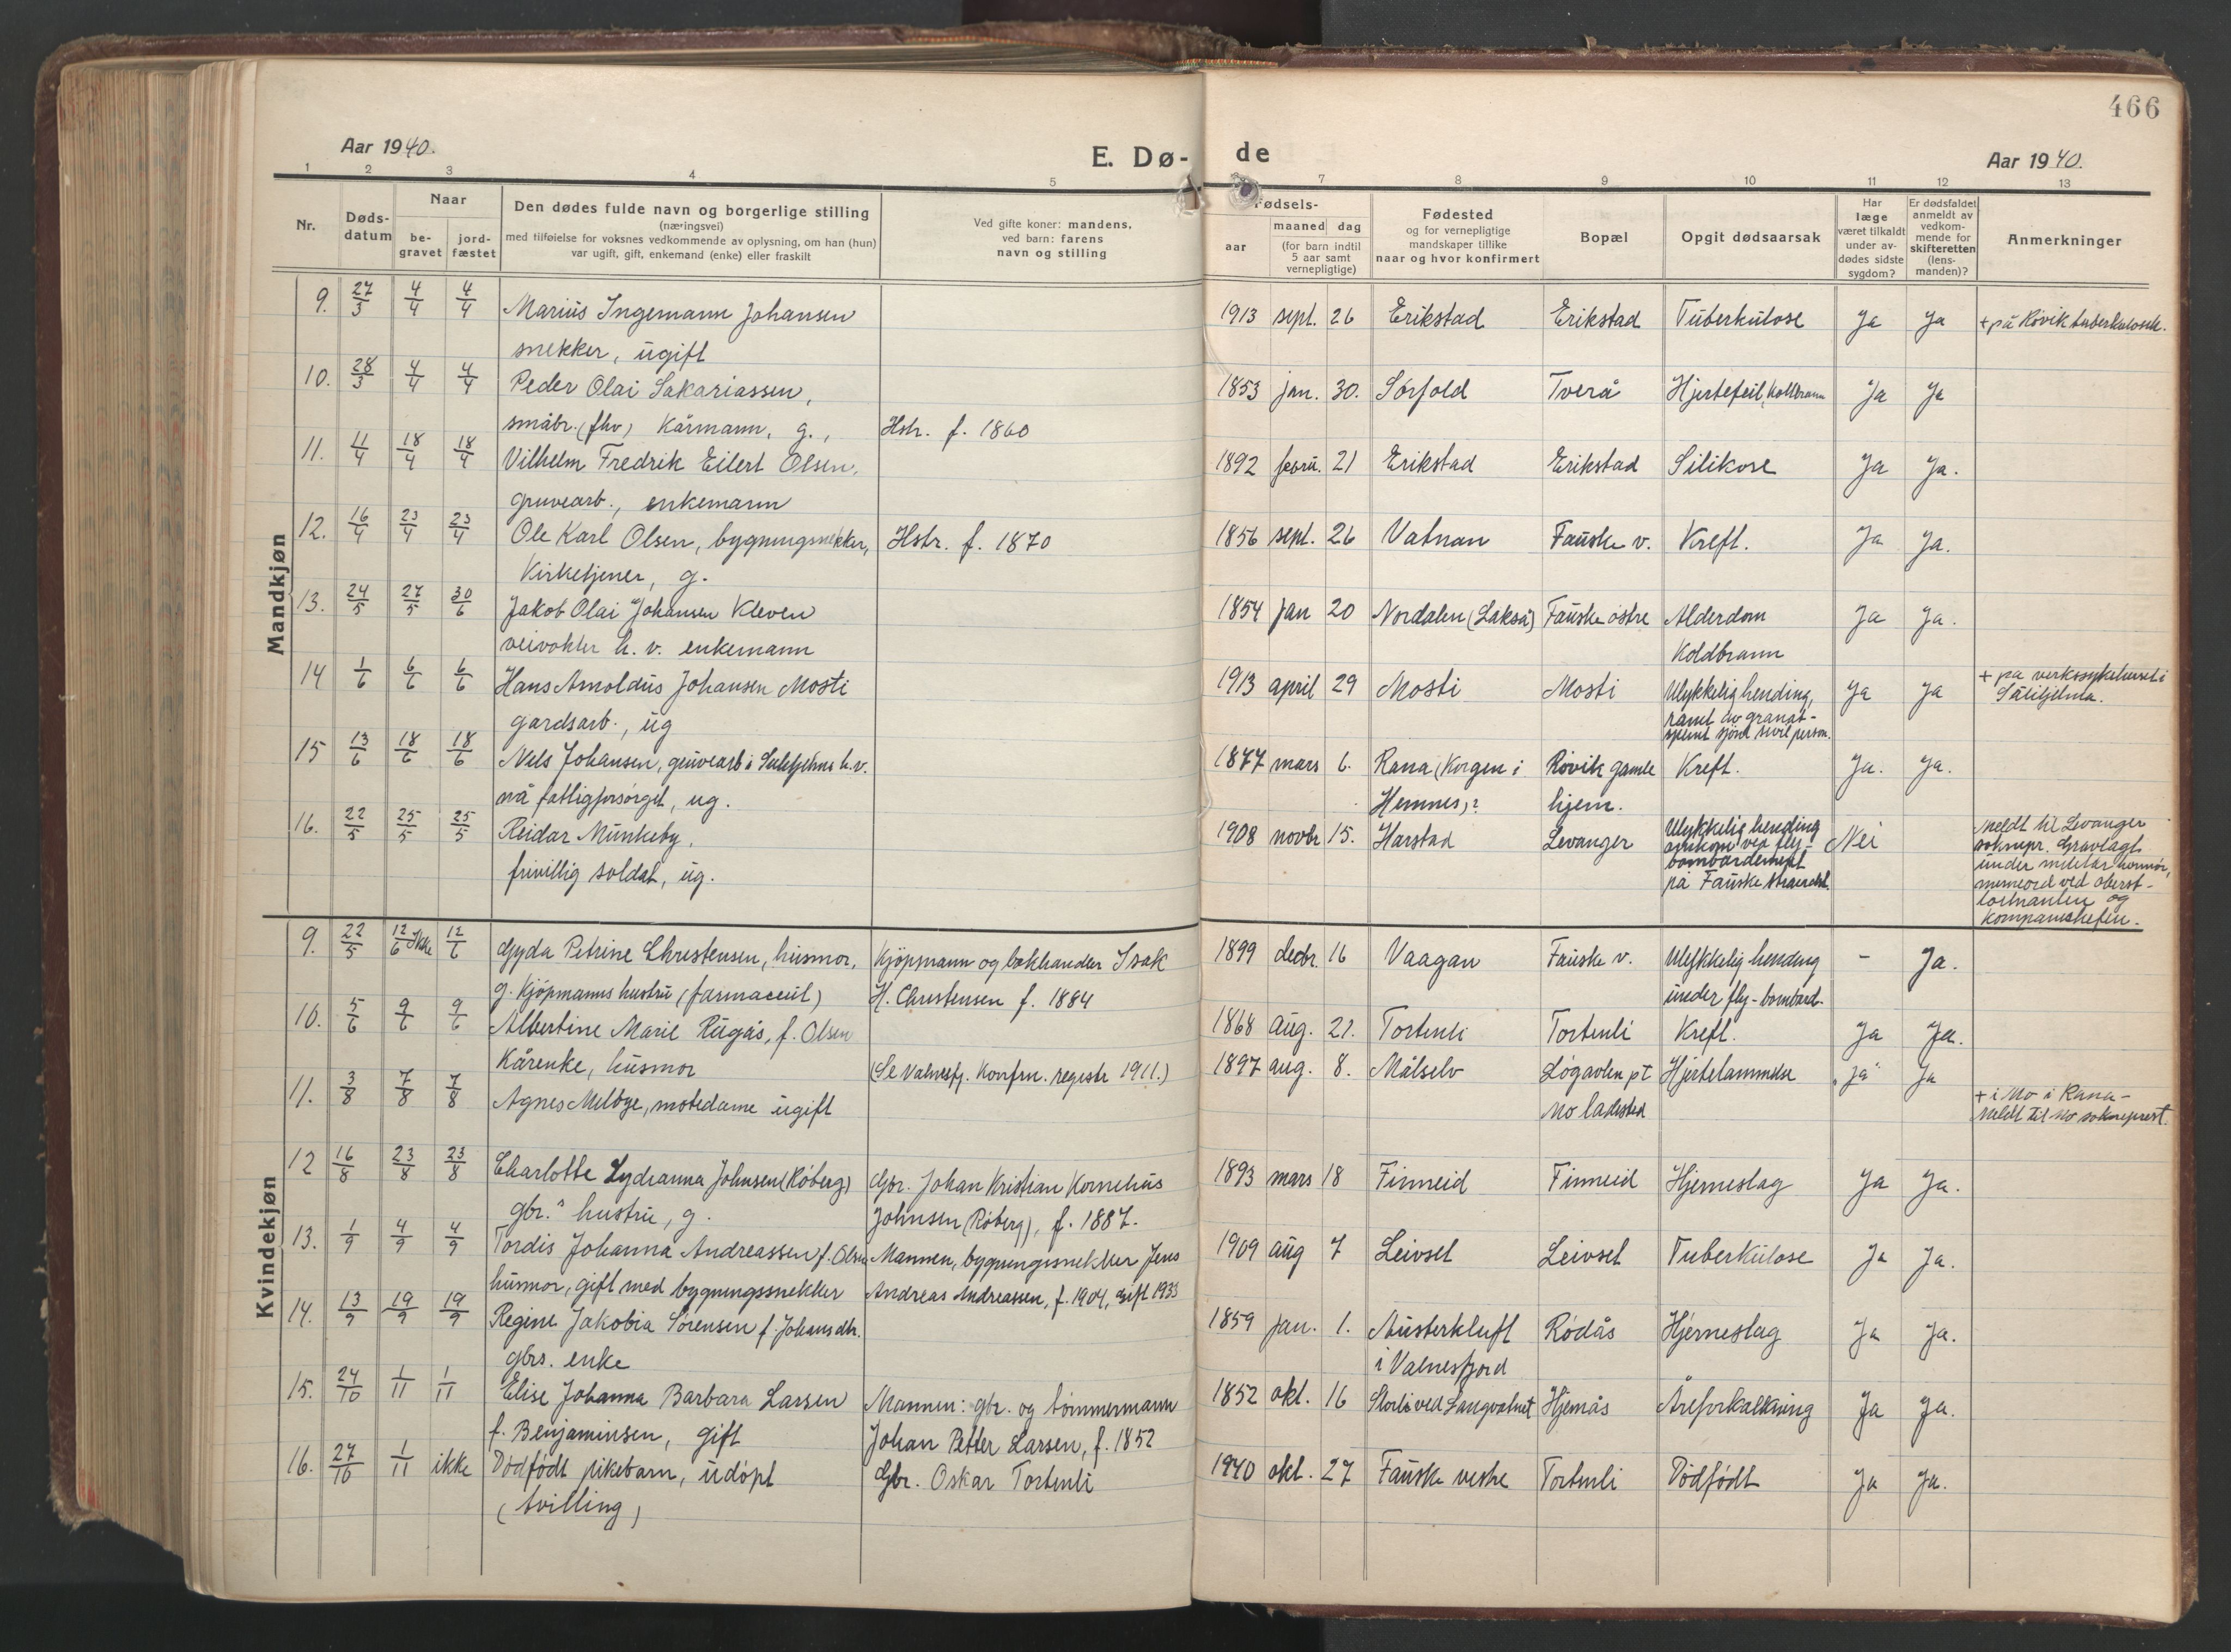 466
Aar 1940.
E. Dø- de
Aar 1940.
1 2 3 4 5 7 8 9 10 11 12 13
Nr.
Døds-
datum
Naar
be-
gravet
jord-
fæstet
Den dødes fulde navn og borgerlige stilling
(næringsvei)
med tilføielse for voksnes vedkommende av oplysning, om han (hun)
var ugift, gift, enkemand (enke) eller fraskilt
Ved gifte koner: mandens,
ved barn: farens
navn og stilling
Fødsels-
aar
maaned dag
(for barn indtil
5 aar samt
vernepligtige)
Fødested
og for vernepligtige
mandskaper tillike
naar og hvor konfirmert
Bopæl
Opgit dødsaarsak
Har
læge
været tilkaldt
under av-
dødes sidste
sygdom?
Er dødsfaldet
anmeldt av
vedkom-
mende for
skifteretten
(lens-
manden)?
Anmerkninger
Mandkjøn
9. 27/3 4/4 4/4 Marius Ingemann Johansen 1913 sept. 26 Erikstad Erikstad Tuberkulose Ja Ja + på Røvik tuberkulosehj.
snekker, ugift
10. 28/3 4/4 4/4 Peder Olai Sakariassen, 1853 jan. 30. Sørfold Tverå Hjertefeil, Kollbrann Ja Ja
småbr. (fhv) Kårmann, g., Hstr. f. 1860
11. 4/4 18/4 18/4 Vilhelm Fredrik Eilert Olsen, 1892 febru. 21 Erikstad Erikstad Silikose Ja Ja.
gruvearb., enkemann
12. 16/4 23/4 23/4 Ole Karl Olsen, bygningsnekker, Hstr. f. 1870 1856 sept. 26 Vatnan Fauske v. Kreft. Ja Ja.
Kirketjener, g.
13. 24/5 27/5 30/6 Jakob Olai Johansen Kleven 1854 jan 20 Nordalen (Lakså) Fauske østre Alderdom Ja Ja.
veivokter h. v. enkemann Koldbrann
14 1/6 6/6 6/6 Hans Arnoldus Johansen Mosti 1913 april 29 Mosti Mosti Ulykkelig hending, Ja Ja + på verkssykehuset i
Sulitjelma.
gardsarb., ug ramt av granat-
splint sivil person.
15 13/6 18/6 18/6 Nels Johansen, gruvearb i Sulitjelma h.v. 1877 mars 6. Rana (Korgen i Røvik gamle Kreft. Ja. Ja.
nå fattigforsørget, ug. Hemnes)? hjem.
16. 22/5 25/5 25/5 Reidar Munkeby, 1908 novbr 15. Harstad Levanger Ulykkelig hending Nei Meldt til Levanger
frivillig soldat, ug. omkom ved fly-
bombardement
på Fauske
soknepr. Gravlagt
under militær honnør,
minneord ved oberst-
løitnanten og
kompanisjefen.
Kvindekjøn
9. 22/5 12/6 Ikke 12/6 Gyda Petrine Christensen, husmor, Kjøpmann og bokhandler Isak 1899 decbr. 16 Vaagan Fauske v. Ulykkelig hending - Ja.
g. Kjøpmanns hustru (farmaceut) H. Christensen f. 1884 under fly-bombard.
10. 5/6 9/6 9/6 Albertine Marie Rugås, f. Olsen 1868 Aug. 21. Tortenli Tortenli Kreft. Ja Ja.
Kårenke, husmor (Se Valnesfj. Konfrm. registr 1911.)
11. 3/8 7/8 7/8 Agnes Melbye, motedame ugift 1897 aug. 8. Målselv Løgavlen pt Hjertelammelse "Ja" Ja + i Mo i Rana -
Mo ladested Meldt til Mo sokneprest.
12 16/8 23/8 23/8 Charlotte Lydianna Johnsen (Røberg) Gbr. Johan Kristian Kornelius 1893 mars 18 Finneid Finneid Hjerneslag Ja Ja.
gbr.s hustru, g. Johnsen (Røberg), f. 1887.
13. 1/9 4/9 4/9 Tordis Johanna Andreassen f. Olsen Mannen, bygningssnekker Jens 1909 aug 7 Leivset Leivset Tuberkulose Ja Ja.
husmor, gift med bygningssnekker Andreas Andreassen, f. 1904, gift 1933
14. 13/9 19/9 19/9 Regine Jakobia Sørensen f. Johansdtr. 1859 jan. 1. Austerkluft Rødås Hjerneslag Ja Ja.
gbrs. enke i Valnesfjord
15. 24/10 1/11 1/11 Elise Johanna Barbara Larsen Mannen: gbr. og tømmermann 1852 okt. 16 Storli ved Langvatnet Hjemås Åreforkalkning Ja Ja.
f. Benjaminsen, gift Johan Petter Larsen, f. 1852
16. 27/10 1/11 ikke Dødfødt pikebarn, udøpt Gbr. Oskar Tortenli 1940 okt. 27 Fauske vestre Tortenli Dødfødt Ja Ja.
(tvilling)